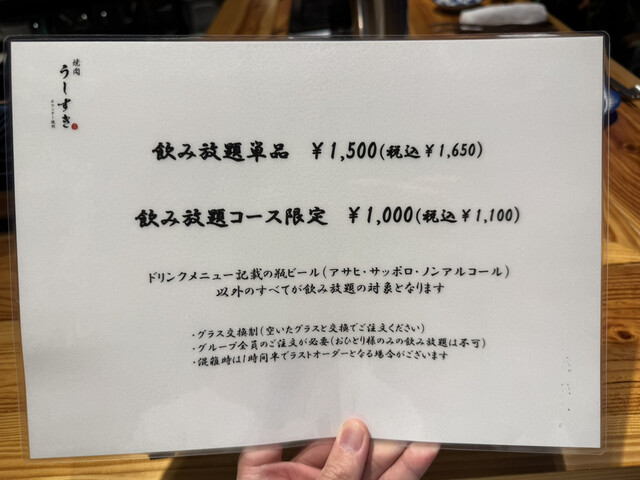 焼肉
うしすき
飲み放題単品 ¥1,500(税込¥1,650)
飲み放題コース限定 ¥1,000(税込¥1,100)
ドリンクメニュー記載の瓶ビール(アサヒ・サッポロ・ノンアルコール)
以外のすべてが飲み放題の対象となります
・グラス交換制(空いたグラスと交換でご注文ください)
・グループ全員のご注文が必要(おひとり様のみの飲み放題は不可)
・混雑時は1時間半でラストオーダーとなる場合がございます